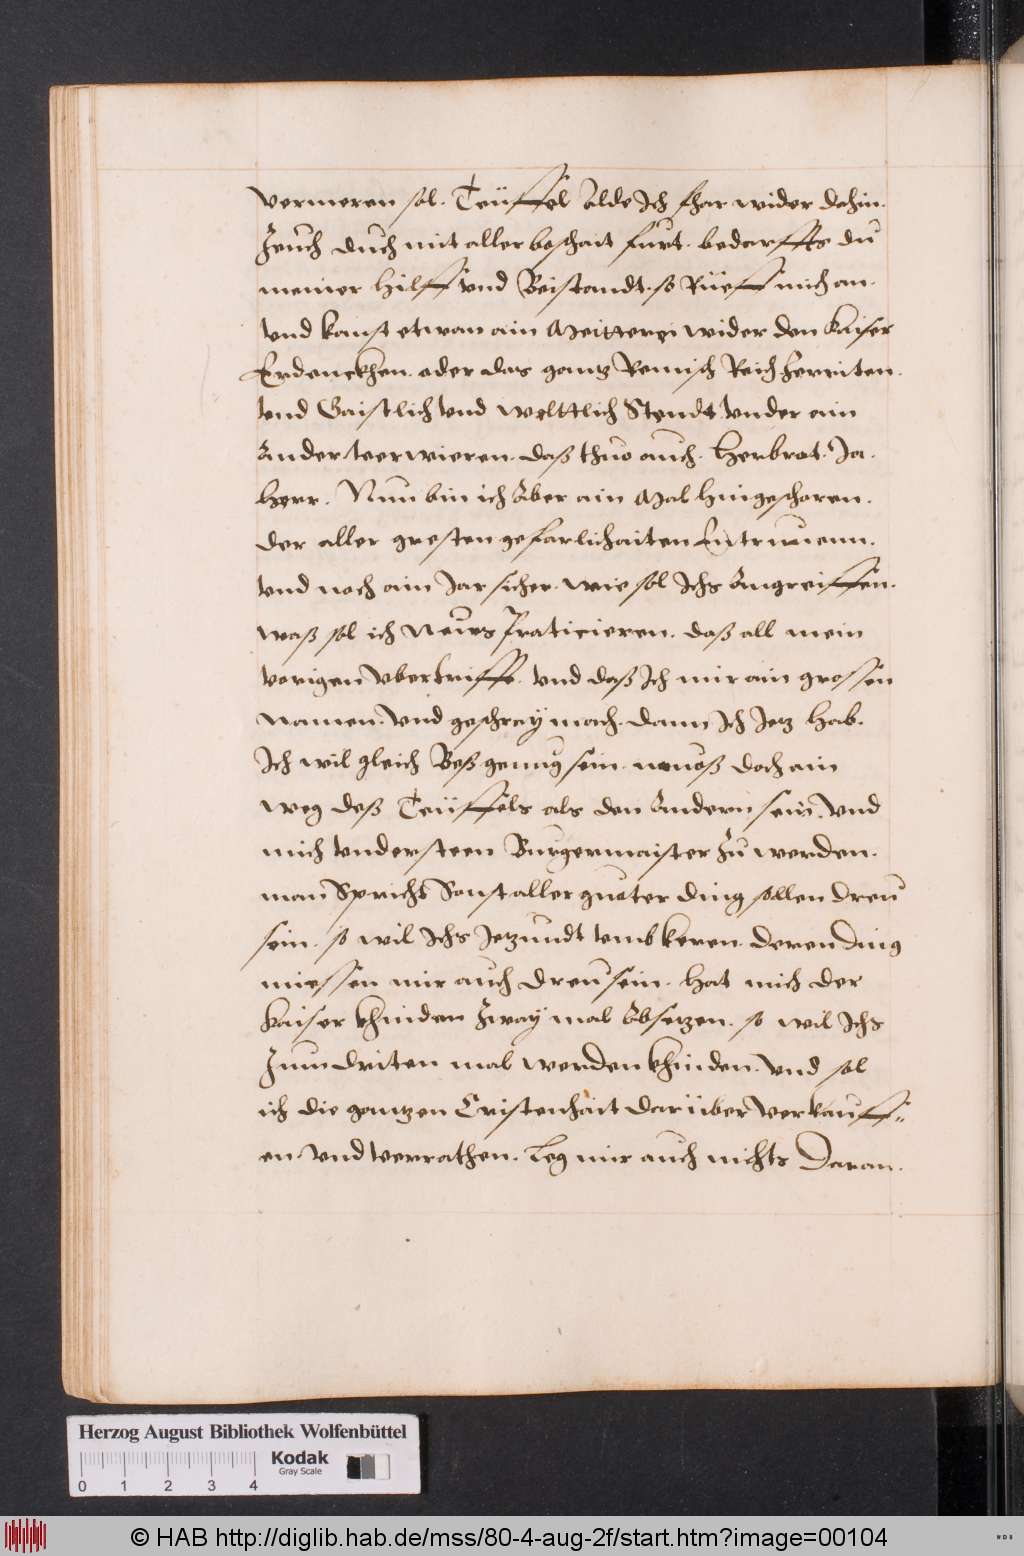 vermeren sol. Teüffel Alde Ich fhar wider dahin.
Zeuch duch mit aller boshait furt. bedarffts du
meiner hilff vnd Beistandt. so Rüeff mich an.
vnd kanst etwan ain Meitterei wider den Kaiser
Erdenckhen. oder das gantz Remisch Reich Zerriten.
vnd Gaistlich vnd weltlich Stendt vnder ain
Ander verwieren. daß thuo auch. Herbrot. Ja.
Herr. Nun bin ich Aber ain Mal hingeschoren.
der aller gresten gefarlichaiten Entrunenn.
vnd noch ain Jar sicher. wie sol Ichs Angreiffen.
waß sol ich neues Praticieren. daß all mein
vorigen vbertriff. vnd daß Ich mir ain grossen
namen. vnd geschray mach. dann Ich Jetz hab.
Ich wil gleich Beß genug sein. muoß doch ain
weg deß Teüffels als den Andern sein. vnd
mich vndersteen Burgermaister Zu werden.
man Spricht Sonst aller guoter ding sollen dreu
sein. so wil Ichs Jetzundt vmbkeren. deren ding
miessen mir auch dreu sein. hat mich der
Kaiser khinden Zway mal Absetzen. so wil Ichs
Zum driten mal werden khinden. vnd sol
ich die gantzen Cristenhait darüber verkauff-
en. vnd verrathen. leg mir auch nichts daran.
Herzog August Bibliothek Wolfenbüttel
Kodak
Gray Scale
0 1 2 3 4
© HAB http://diglib.hab.de/mss/80-4-aug-2f/start.htm?image=00104